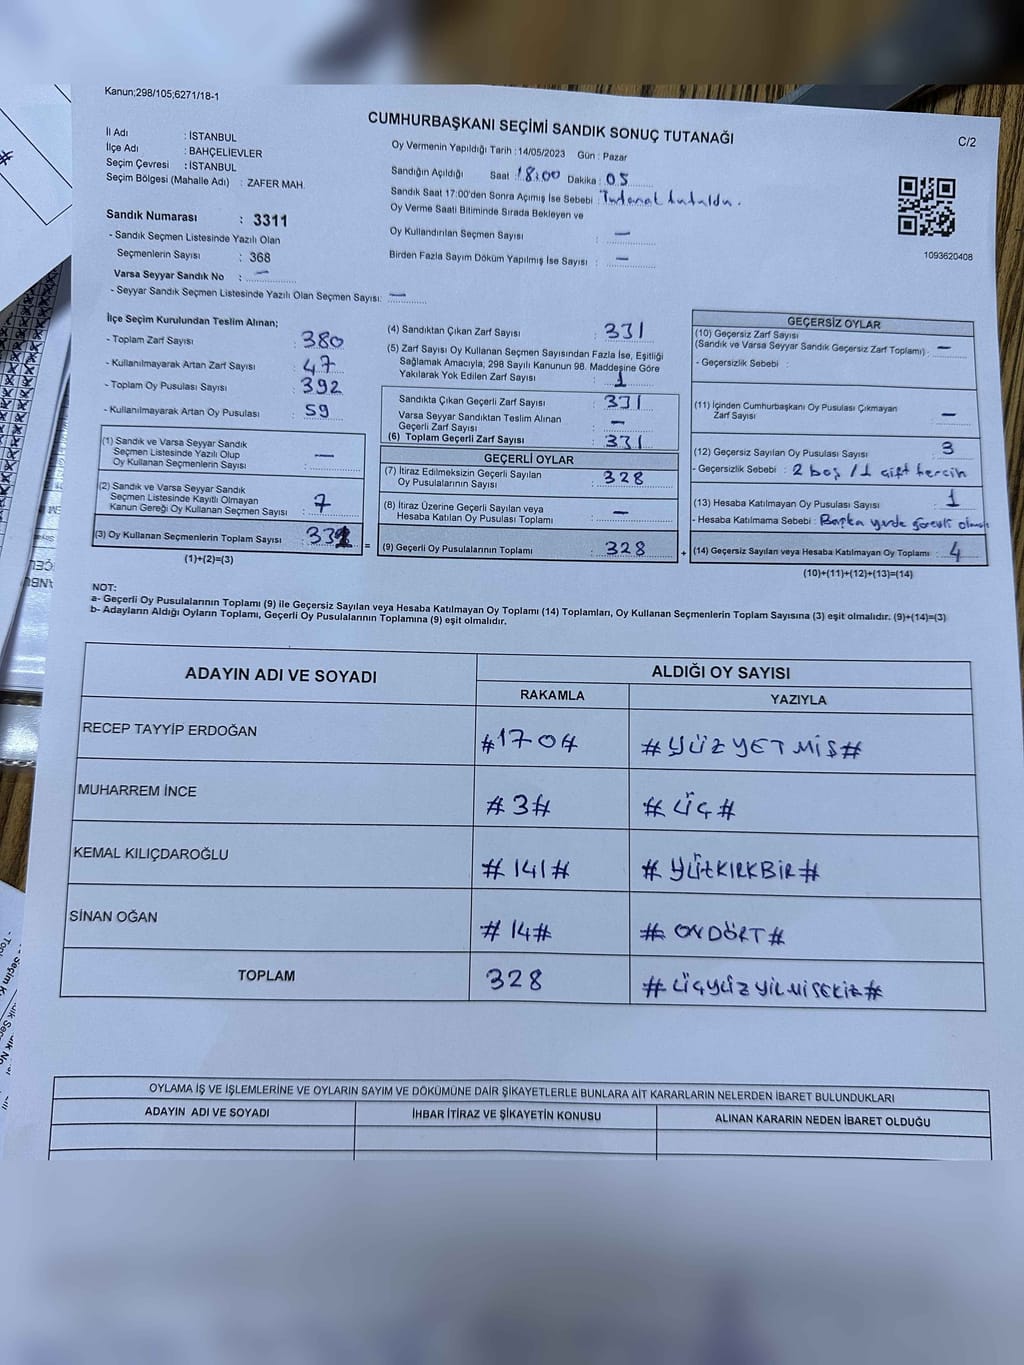 Kanun;298/105;6271/18-1
CUMHURBAŞKANI SEÇİMİ SANDIK SONUÇ TUTANAĞI
C/2
İl Adı : İSTANBUL
İlçe Adı : BAHÇELİEVLER
Seçim Çevresi : İSTANBUL
Seçim Bölgesi (Mahalle Adı) : ZAFER MAH.
Oy Vermenin Yapıldığı Tarih : 14/05/2023 Gün : Pazar
Sandığın Açıldığı Saat : 18:00 Dakika : 05
Sandık Saat 17:00'den Sonra Açımış İse Sebebi : Tutanak tutuldu.
Oy Verme Saati Bitiminde Sırada Bekleyen ve
Oy Kullandırılan Seçmen Sayısı : —
Birden Fazla Sayım Döküm Yapılmış İse Sayısı : —
1093620408
Sandık Numarası : 3311
- Sandık Seçmen Listesinde Yazılı Olan
Seçmenlerin Sayısı : 368
Varsa Seyyar Sandık No : —
- Seyyar Sandık Seçmen Listesinde Yazılı Olan Seçmen Sayısı: —
İlçe Seçim Kurulundan Teslim Alınan;
- Toplam Zarf Sayısı : 380
- Kullanılmayarak Artan Zarf Sayısı : 47
- Toplam Oy Pusulası Sayısı : 392
- Kullanılmayarak Artan Oy Pusulası : 59
(1) Sandık ve Varsa Seyyar Sandık
Seçmen Listesinde Yazılı Olup
Oy Kullanan Seçmenlerin Sayısı : —
(2) Sandık ve Varsa Seyyar Sandık
Seçmen Listesinde Kayıtlı Olmayan
Kanun Gereği Oy Kullanan Seçmen Sayısı : 7
(3) Oy Kullanan Seçmenlerin Toplam Sayısı : 332 =
(1)+(2)=(3)
(4) Sandıktan Çıkan Zarf Sayısı : 331
(5) Zarf Sayısı Oy Kullanan Seçmen Sayısından Fazla İse, Eşitliği
Sağlamak Amacıyla; 298 Sayılı Kanunun 98. Maddesine Göre
Yakılarak Yok Edilen Zarf Sayısı : 1
Sandıkta Çıkan Geçerli Zarf Sayısı : 331
Varsa Seyyar Sandıktan Teslim Alınan
Geçerli Zarf Sayısı : —
(6) Toplam Geçerli Zarf Sayısı : 331
GEÇERLİ OYLAR
(7) İtiraz Edilmeksizin Geçerli Sayılan
Oy Pusulalarının Sayısı : 328
(8) İtiraz Üzerine Geçerli Sayılan veya
Hesaba Katılan Oy Pusulası Toplamı : —
(9) Geçerli Oy Pusulalarının Toplamı : 328 +
GEÇERSİZ OYLAR
(10) Geçersiz Zarf Sayısı
(Sandık ve Varsa Seyyar Sandık Geçersiz Zarf Toplamı) : —
- Geçersizlik Sebebi :
(11) İçinden Cumhurbaşkanı Oy Pusulası Çıkmayan
Zarf Sayısı : —
(12) Geçersiz Sayılan Oy Pusulası Sayısı : 3
- Geçersizlik Sebebi : 2 boş / 1 çift tercih
(13) Hesaba Katılmayan Oy Pusulası Sayısı : 1
- Hesaba Katılmama Sebebi : Başka yerde görevli
(14) Geçersiz Sayılan veya Hesaba Katılmayan Oy Toplamı : 4
(10)+(11)+(12)+(13)=(14)
NOT:
a- Geçerli Oy Pusulalarının Toplamı (9) ile Geçersiz Sayılan veya Hesaba Katılmayan Oy Toplamı (14) Toplamları, Oy Kullanan Seçmenlerin Toplam Sayısına (3) eşit olmalıdır. (9)+(14)=(3)
b- Adayların Aldığı Oyların Toplamı, Geçerli Oy Pusulalarının Toplamına (9) eşit olmalıdır.
ADAYIN ADI VE SOYADI
ALDIĞI OY SAYISI
RAKAMLA YAZIYLA
RECEP TAYYİP ERDOĞAN #170# #YÜZ YETMİŞ#
MUHARREM İNCE #3# #ÜÇ#
KEMAL KILIÇDAROĞLU #141# #YÜZKIRKBİR#
SİNAN OĞAN #14# #ONDÖRT#
TOPLAM 328 #ÜÇYÜZYİLMİSEKİZ#
OYLAMA İŞ VE İŞLEMLERİNE VE OYLARIN SAYIM VE DÖKÜMÜNE DAİR ŞİKAYETLERLE BUNLARA AİT KARARLARIN NELERDEN İBARET BULUNDUKLARI
ADAYIN ADI VE SOYADI İHBAR İTİRAZ VE ŞİKAYETİN KONUSU ALINAN KARARIN NEDEN İBARET OLDUĞU